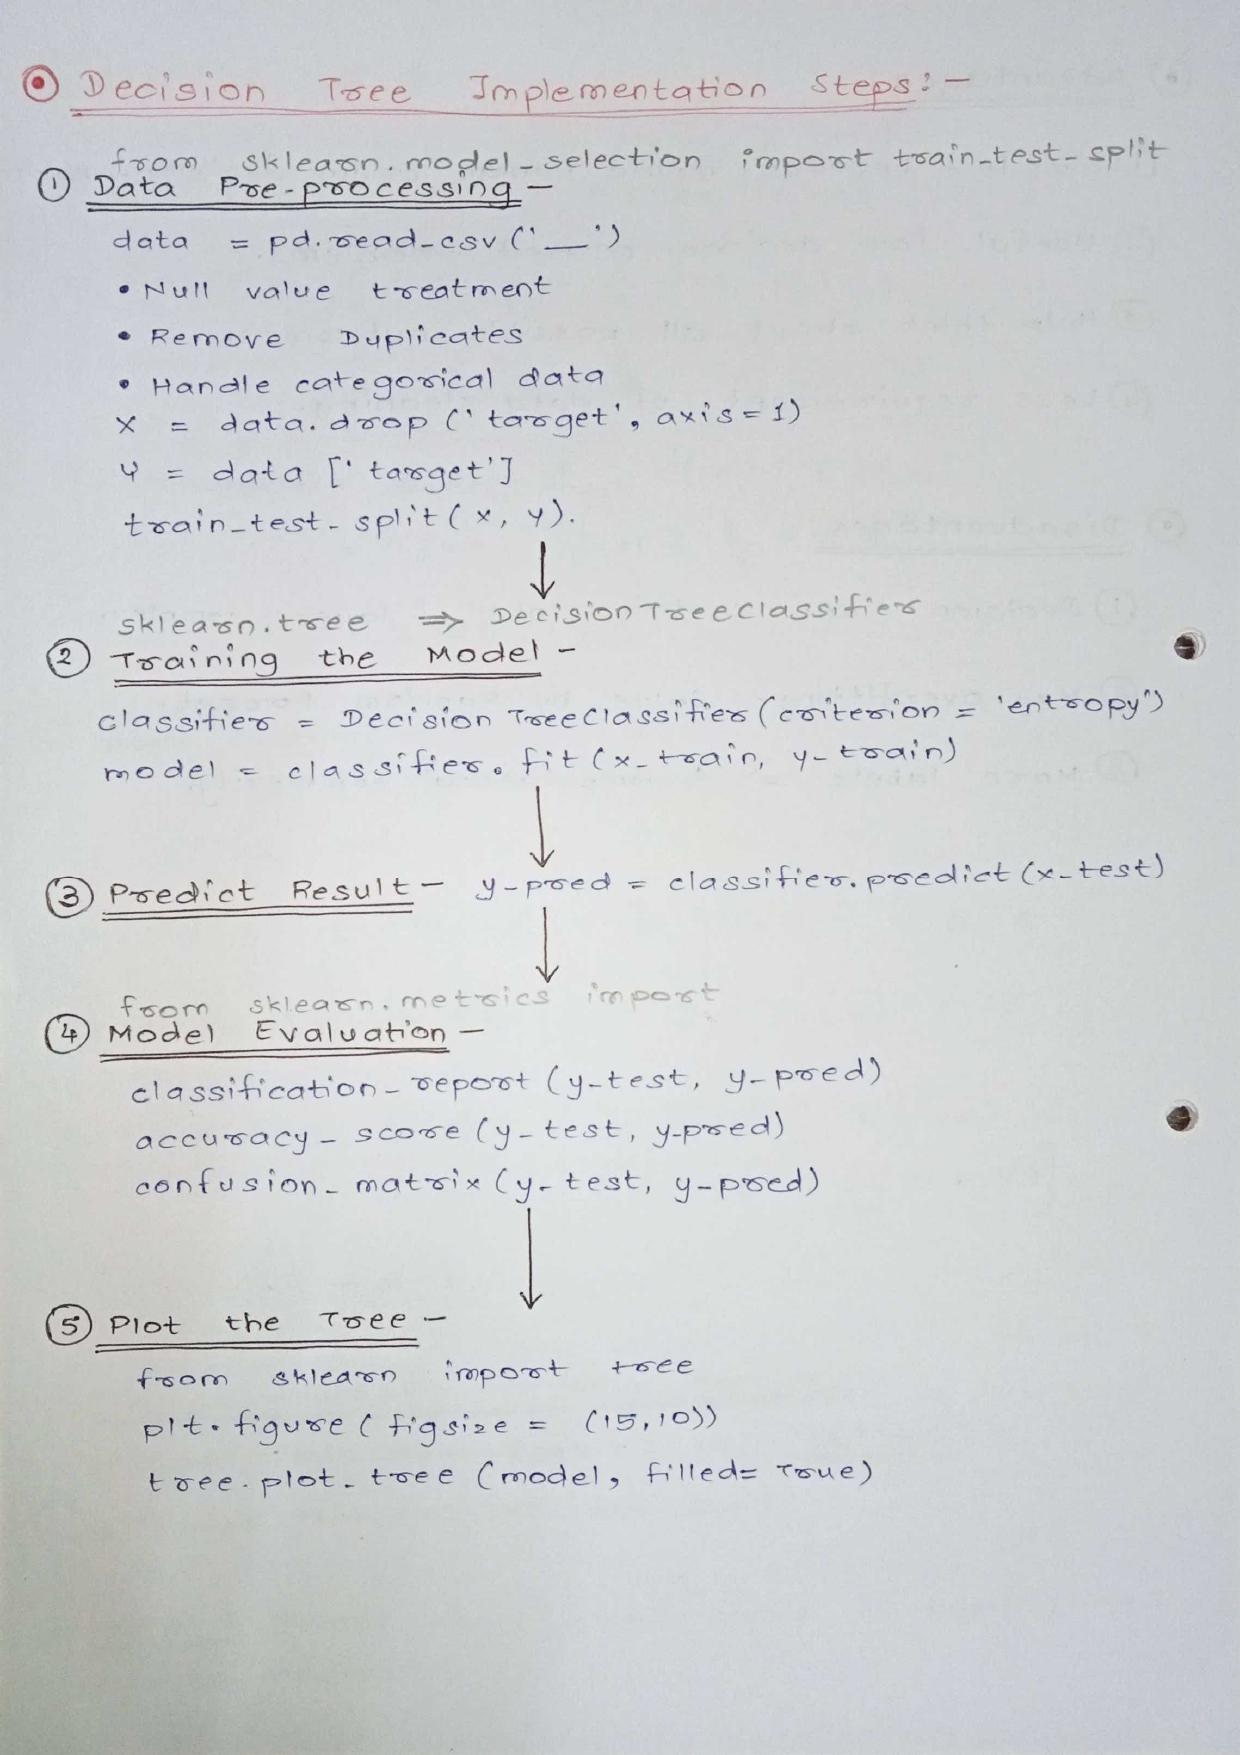 Decision Tree Implementation Steps:-
from sklearn.model_selection import train_test_split
① Data Pre-processing -
data = pd.read_csv('__')
• Null value treatment
• Remove Duplicates
• Handle categorical data
x = data.drop('target', axis=1)
y = data['target']
train_test_split(x, y).
↓
sklearn.tree ⇒ DecisionTreeClassifier
② Training the Model -
classifier = DecisionTreeClassifier(criterion = 'entropy')
model = classifier.fit(x_train, y_train)
↓
③ Predict Result - y_pred = classifier.predict(x_test)
↓
from sklearn.metrics import
④ Model Evaluation -
classification_report(y_test, y_pred)
accuracy_score(y_test, y_pred)
confusion_matrix(y_test, y_pred)
↓
⑤ Plot the Tree -
from sklearn import tree
plt.figure(figsize = (15,10))
tree.plot_tree(model, filled=True)